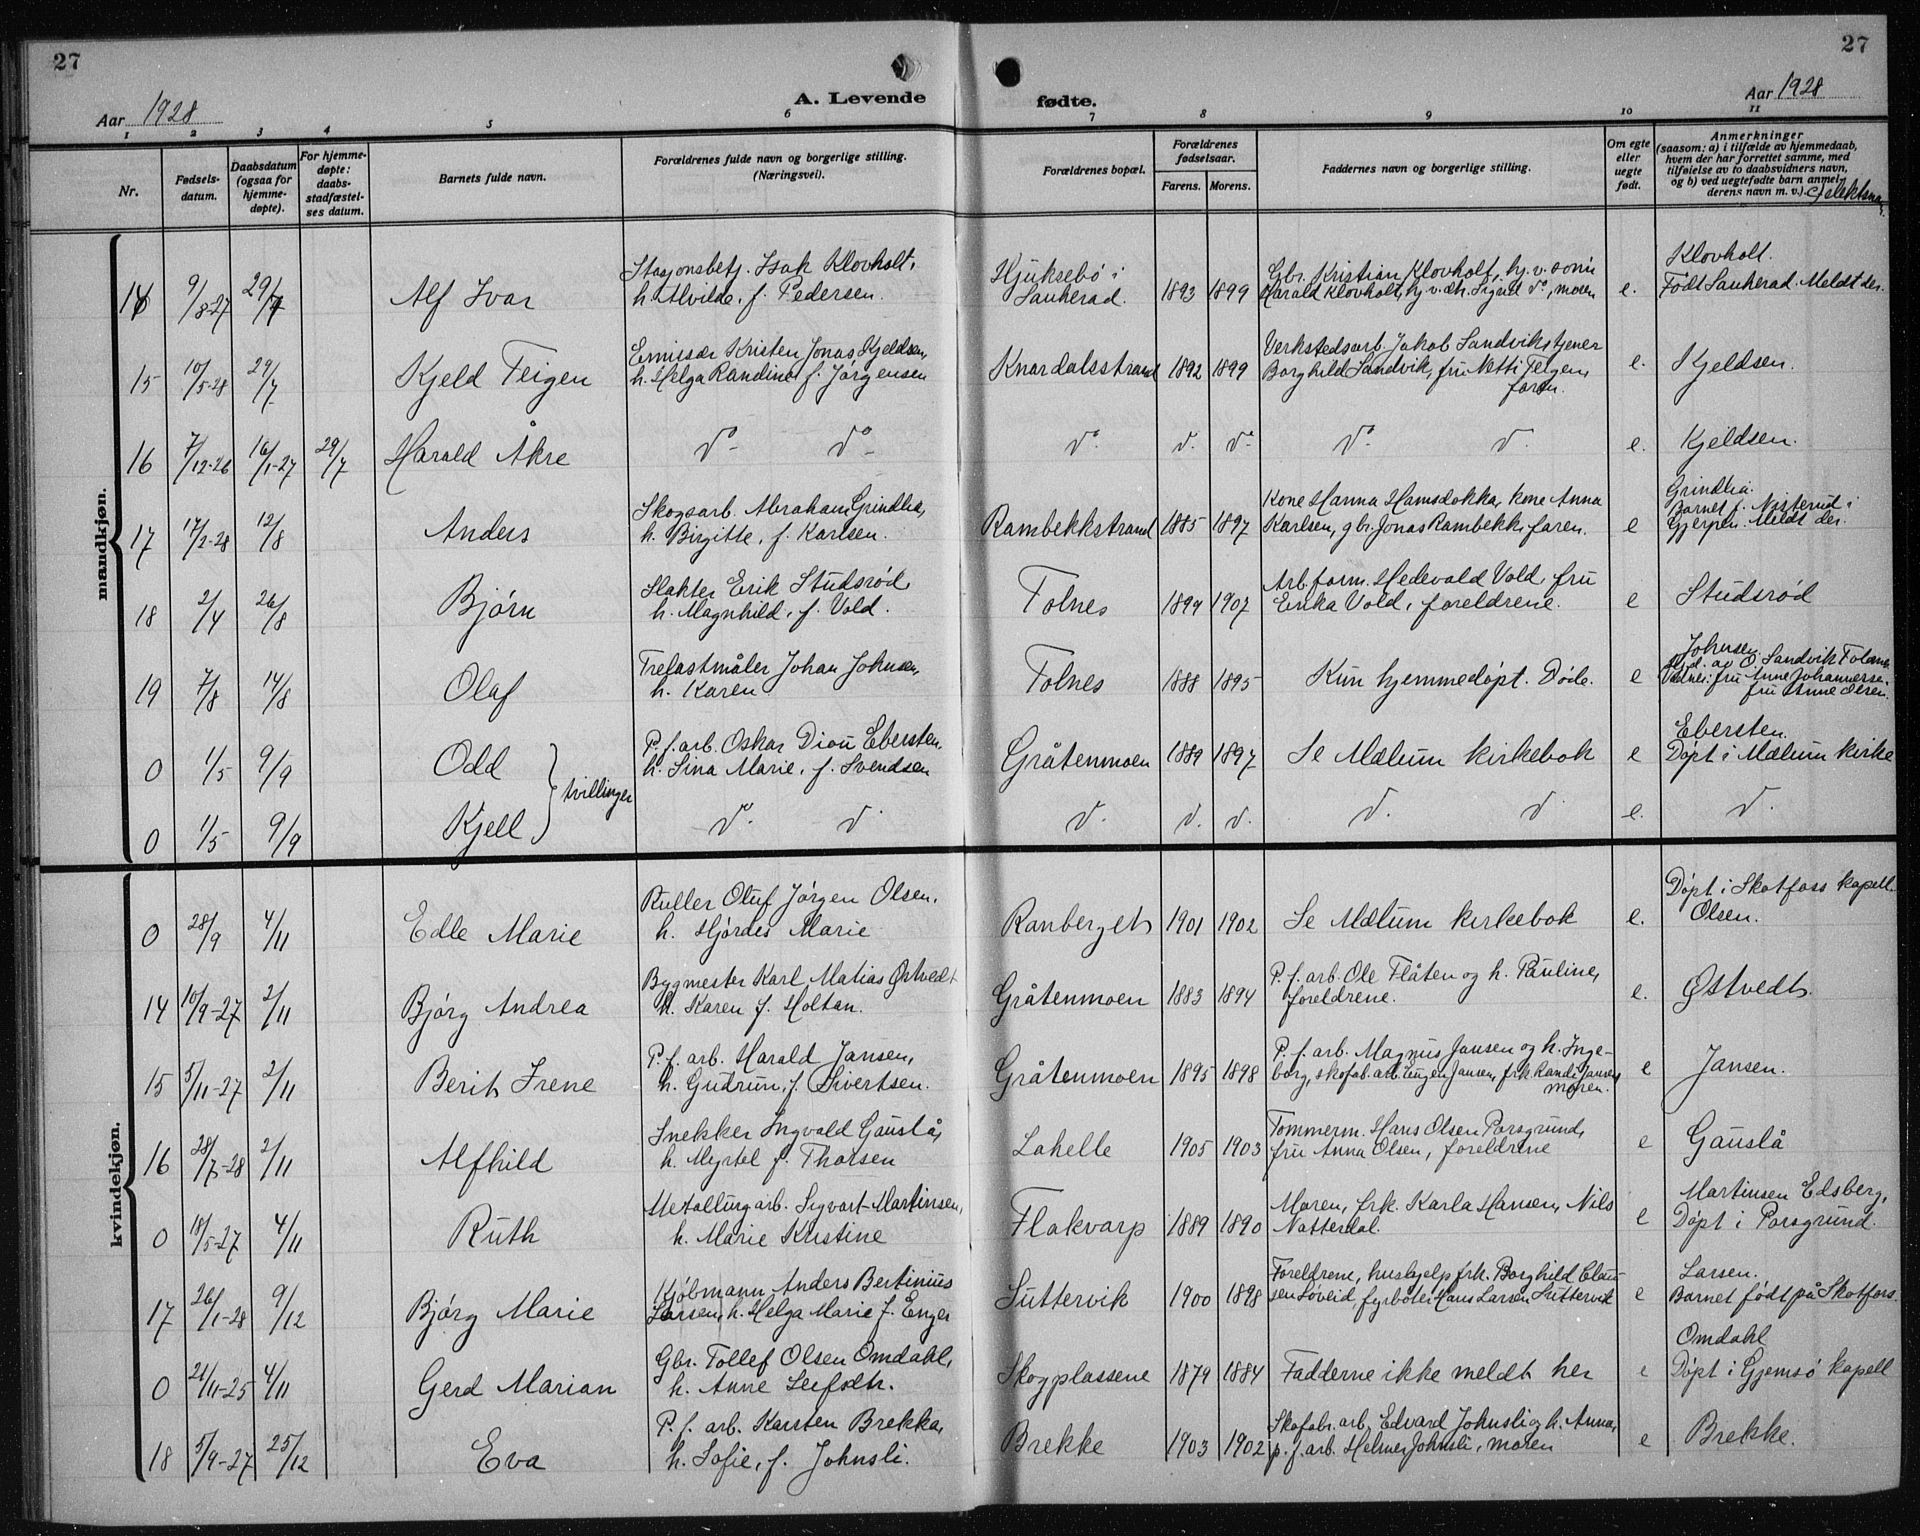 27
27
Aar 1928
A. Levende
fødte.
Aar 1928
1 2 3 4 5 6 7 8 9 10 11
Nr.
Fødsels-
datum.
Daabsdatum
(ogsaa for
hjemme-
døpte).
For hjemme-
døpte:
daabs-
stadfæstel-
ses datum.
Barnets fulde navn.
Forældrenes fulde navn og borgerlige stilling.
(Næringsvei).
Forældrenes bopæl.
Forældrenes
fødselsaar.
Farens. Morens.
Faddernes navn og borgerlige stilling.
Om egte
eller
uegte
født.
Anmerkninger
(saasom: a) i tilfælde av hjemmedaab,
hvem der har forrettet samme, med
tilføielse av to daabsvidners navn,
og b) ved uegtefødte barn anmel-
derens navn m. v.).
mandkjøn.
Stasjonsbetj. Isak Klovholt,
Hjuksebö i
Gbr. Kristian Klovholt, hj.v. sönn
Klovholt.
14 9/8-27 29/7 Alf Ivar
h. Alvilde, f. Pedersen.
Sauherad. 1893 1899
Harald Klovholt, hj.v.dtr. Sigrid do, moren
e. Födt Sauherad. Meldt der.
Emissær Kristen Jonas Kjeldsen,
Verkstedsarb. Jakob Sandvik, tjener
15 10/5-28 29/7 Kjeld Teigen
h. Helga Randine, f. Jørgensen
Knardalsstrand 1892 1899
Borghild Sandvik, fru Netti Teigen,
faren.
e. Kjeldsen.
16 7/12-26 16/1-27 29/7 Harald Åkre
do do
do d. do
do d.
e. Kjeldsen.
Skogsarb. Abraham Grindlia,
Kone Hanna Hamsdokka, kone Anna
Grindlia.
Barnet f. Nisterud i
17 17/2-28 12/8 Anders
h. Birgitte, f. Karlsen.
Rambekkstrand 1885 1897
Karlsen, gbr. Jonas Rambekk, faren.
e Gjerpen. Meldt der.
Slakter Erik Studsrød,
Arb.form. Hedevald Vold, fru
18 2/4 26/8 Bjørn
h. Magnhild, f. Vold.
Folnes 1899 1907
Erika Vold, foreldrene.
e Studsrød
Trelastmåler Johan Johnsen,
Johnsen.
19 7/8 14/8 Olaf
h. Karen
Folnes 1888 1895
Kun hjemmedöpt. Döde.
e
Vidner: fru Anne Johannesen,
P.f.arb. Oskar Dion Ebersten,
Ebersten.
0 1/5 9/9 Odd
tvillinger
h. Sina Marie, f. Svendsen
Gråtenmoen 1889 1897
Se Mælum kirkebok
e Döpt i Mælum kirke
0 1/5 9/9 Kjell
do d.
d. d. d.
d. d.
e. d.
kvindekjøn.
Ruller Oluf Jörgen Olsen,
Döpt i Skotfoss kapell.
0 28/9 4/11 Edle Marie
h. Hjørdes Marie
Ranberget 1901 1902
Se Mælum kirkebok
e. Olsen.
Bygmester Karl Matias Østvedt
P.f. arb. Ole Flåten og h. Pauline,
14 10/9-27 2/11 Bjørg Andrea
h. Karen f. Holtan.
Gråtenmoen 1883 1894
foreldrene.
e. Østvedt.
P.f. arb. Harald Jansen,
P.f. arb. Magnus Jansen og h. Inge-
15 5/11-27 2/11 Berit Irene
h. Gudrun, f. Sivertsen.
Gråtenmoen 1895 1898
borg, skofab.arb. Eugen Jansen, frk. Randi Jansen,
moren.
e Jansen.
Snekker Ingvald Gauslå,
Tømmerm. Hans Olsen Porsgrund,
16 28/7-28 2/11 Alfhild
h. Myrtel f. Thorsen
Lahelle 1905 1903
fru Anna Olsen, foreldrene
e Gauslå
Metallurg.arb. Sigvart Martinsen,
Moren, frk. Karla Hansen, Nils
Martinsen Edsberg,
0 18/5-27 4/11 Ruth
h. Marie Kristine
Flakvarp 1889 1890
Natterdal.
e Döpt i Porsgrund.
Sjøbmann Anders Bertinius
Foreldrene, hushjelp frk. Borghild Clau-
Larsen.
17 26/1-28 9/12 Bjørg Marie
Larsen, h. Helga Marie f. Enger
Suttervik 1900 1898
sen Løveid, fyrböter Hans Larsen Suttervik
e Barnet födt på Skotfoss.
Gbr. Tollef Olsen Omdahl,
Omdahl
0 21/11-25 4/11 Gerd Marian
h. Anne Leifsdtr.
Skogplassene 1879 1884
Fadderne ikke meldt her
e Döpt i Gjemsö kapell
P.f. arb. Karsten Brekka,
Skofabr.arb. Edvard Johnsli og h. Anna,
18 5/9-27 25/12 Eva
h. Sofie, f. Johnsli.
Brekke 1903 1902
p.f. arb. Helmer Johnsli, moren
e Brekke.